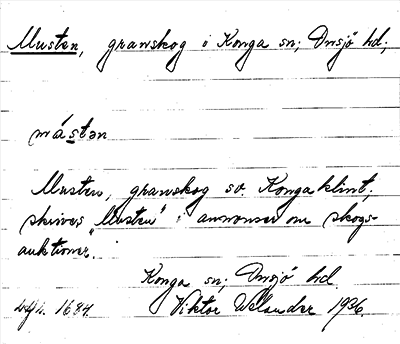 Musten, granskog i Konga sn; Onsjö hd;
mástən
Musten, granskog sv. Konga klint;
skrives "Musten" i annonser om skogs-
auktioner.
Konga sn; Onsjö hd
1684. Viktor Welander 1936.